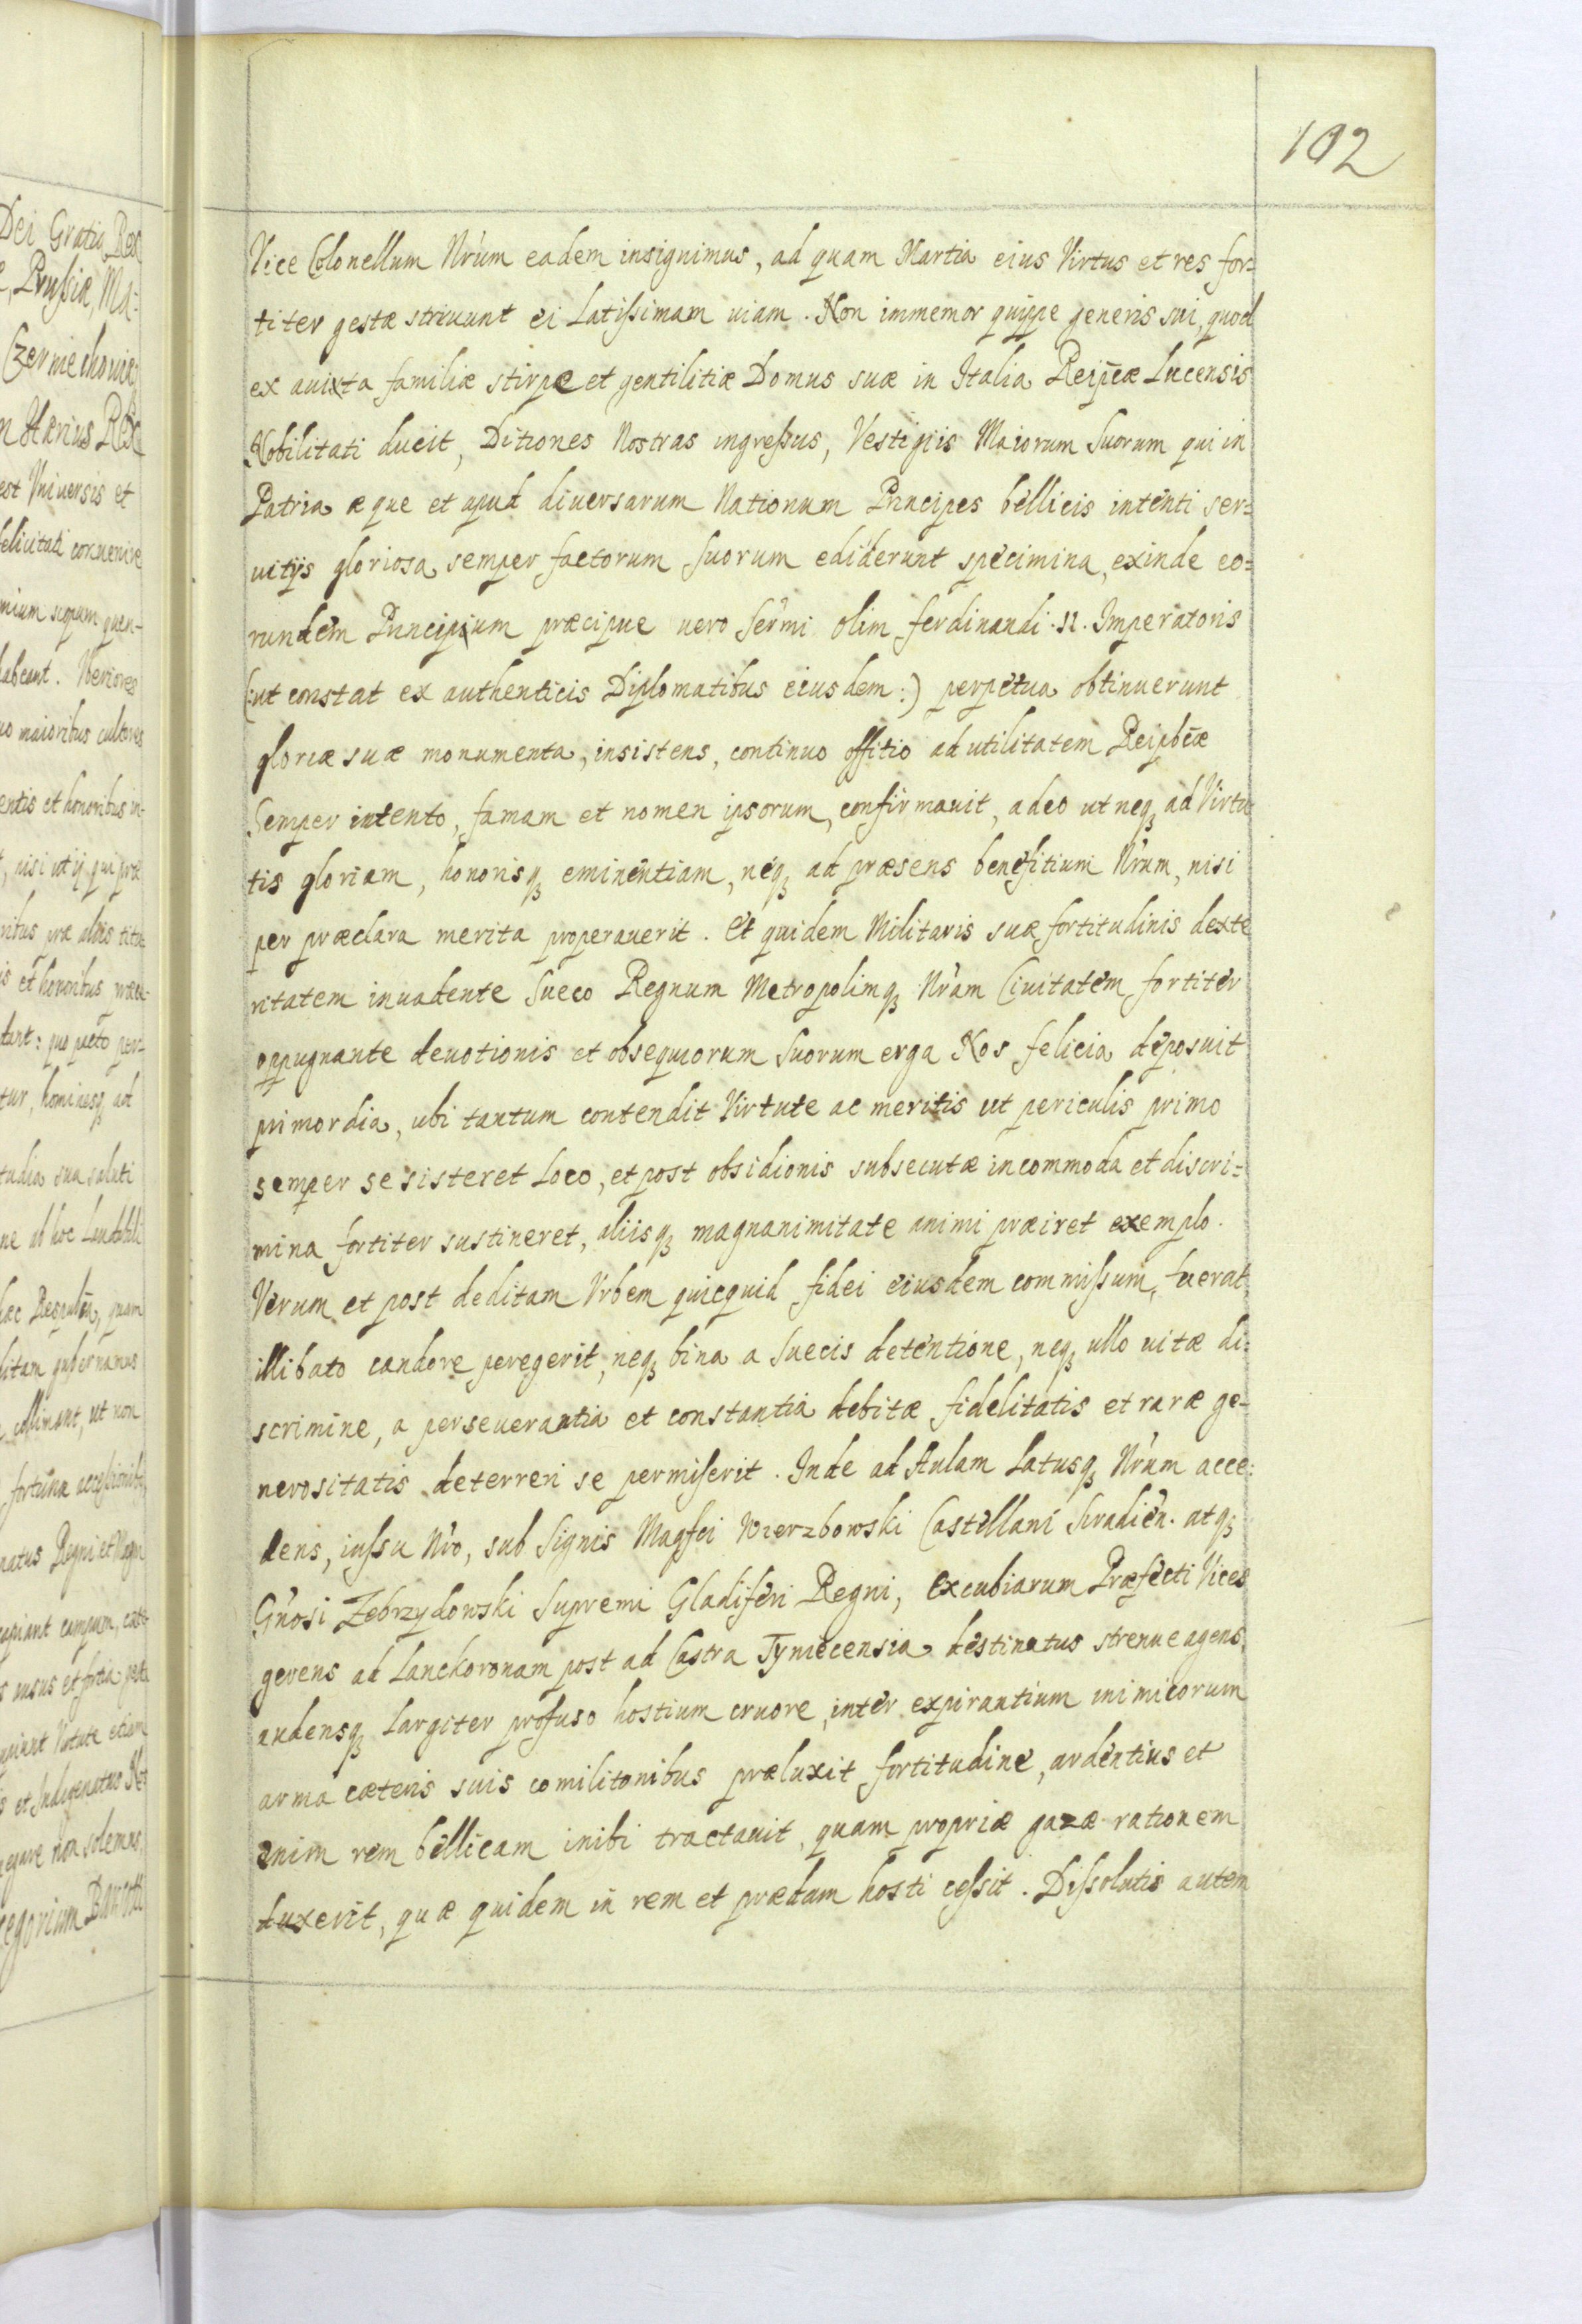 102
Dei Gratia Rex
Prussiæ, Ma:
Czerniechouiæ
est Vniuersis et
felicitati conuenire
habeant. Vberiores
uo maioribus cultores
entis et honoribus in-
, nisi ut ij qui præ
is et honoribus
dant: quo pacto per-
tur, hominesq3 ad
tudia sua saluti
ne ab hoc Laudabili
hæc Respubca, quam
litam gubernamus
collimant, ut non
fortuna accessionib9
natus Regni et Magni
s et Indigenatus
negare non solemus,
Vice Colonellum Nr̃um eadem insignimus, ad quam Martia eius Virtus et res for-
titer gestæ struunt ei Latissimam uiam. Non immemor quippe generis sui, quod
ex auita familiæ stirpe et gentilitiæ Domus suæ in Italia Reipc̃æ Lucensis
Nobilitati ducit, Ditiones Nostras ingressus, Vestigiis Maiorum Suorum qui in
Patria æque et apud diuersarum Nationum Principes bellicis intenti ser-
uitijs gloriosa semper factorum Suorum ediderunt specimina, exinde eo-
rundem Principum præcipue uero Ser̃mi olim ferdinandi .II. Imperatoris
(:ut constat ex authenticis Diplomatibus eiusdem:) perpetua obtinuerunt
gloriæ suæ monumenta, insistens, continuo offitio ad utilitatem Reipbc̃æ
Semper intento, famam et nomen ipsorum, confirmauit, adeo ut neq3 ad Virtu
tis gloriam, honorisq3 eminentiam, neq3 ad præsens benefitium Nr̃um, nisi
per præclara merita properauerit. Et quidem Militaris suæ fortitudinis dexte
ritatem inuadente Sueco Regnum Metropolimq3 Nr̃am Ciuitatem fortiter
oppugnante deuotionis et obsequiorum Suorum erga Nos felicia deposuit
primordia, ubi tantum contendit Virtute ac meritis ut periculis primo
semper se sisteret Loco, et post obsidionis subsecutæ incommoda et discri-
mina fortiter sustineret, aliisq3 magnanimitate animi præiret exemplo.
Verum et post deditam Vrbem quicquid fidei eiusdem commissum, fuerat
illibato candore peregerit, neq3 bina a Suecis detentione, neq3 ullo uitæ di-
scrimine, a perseuerantia et constantia debitæ fidelitatis et raræ ge-
nerositatis deterreri se permiserit. Inde ad Aulam Latusq3 Nr̃um acce-
dens, iussu Nr̃o, sub Signis Magfci Wierzbowski Castellani Siradien̄. atq3
Gn̄osi Zebrzydowski Supremi Gladiferi Regni, Excubiarum Præfecti Vices
gerens ad Lanckoronam post ad Castra Tynecensia destinatus strenue agens
audensq3 Largiter profuso hostium cruore, inter expirantium inimicorum
arma cæteris suis comilitonibus præluxit fortitudine, ardentius et
enim rem bellicam inibi tractauit, quam propriæ gazæ rationem
duxerit, quæ quidem in rem et prædam hosti cessit. Dissolutis autem